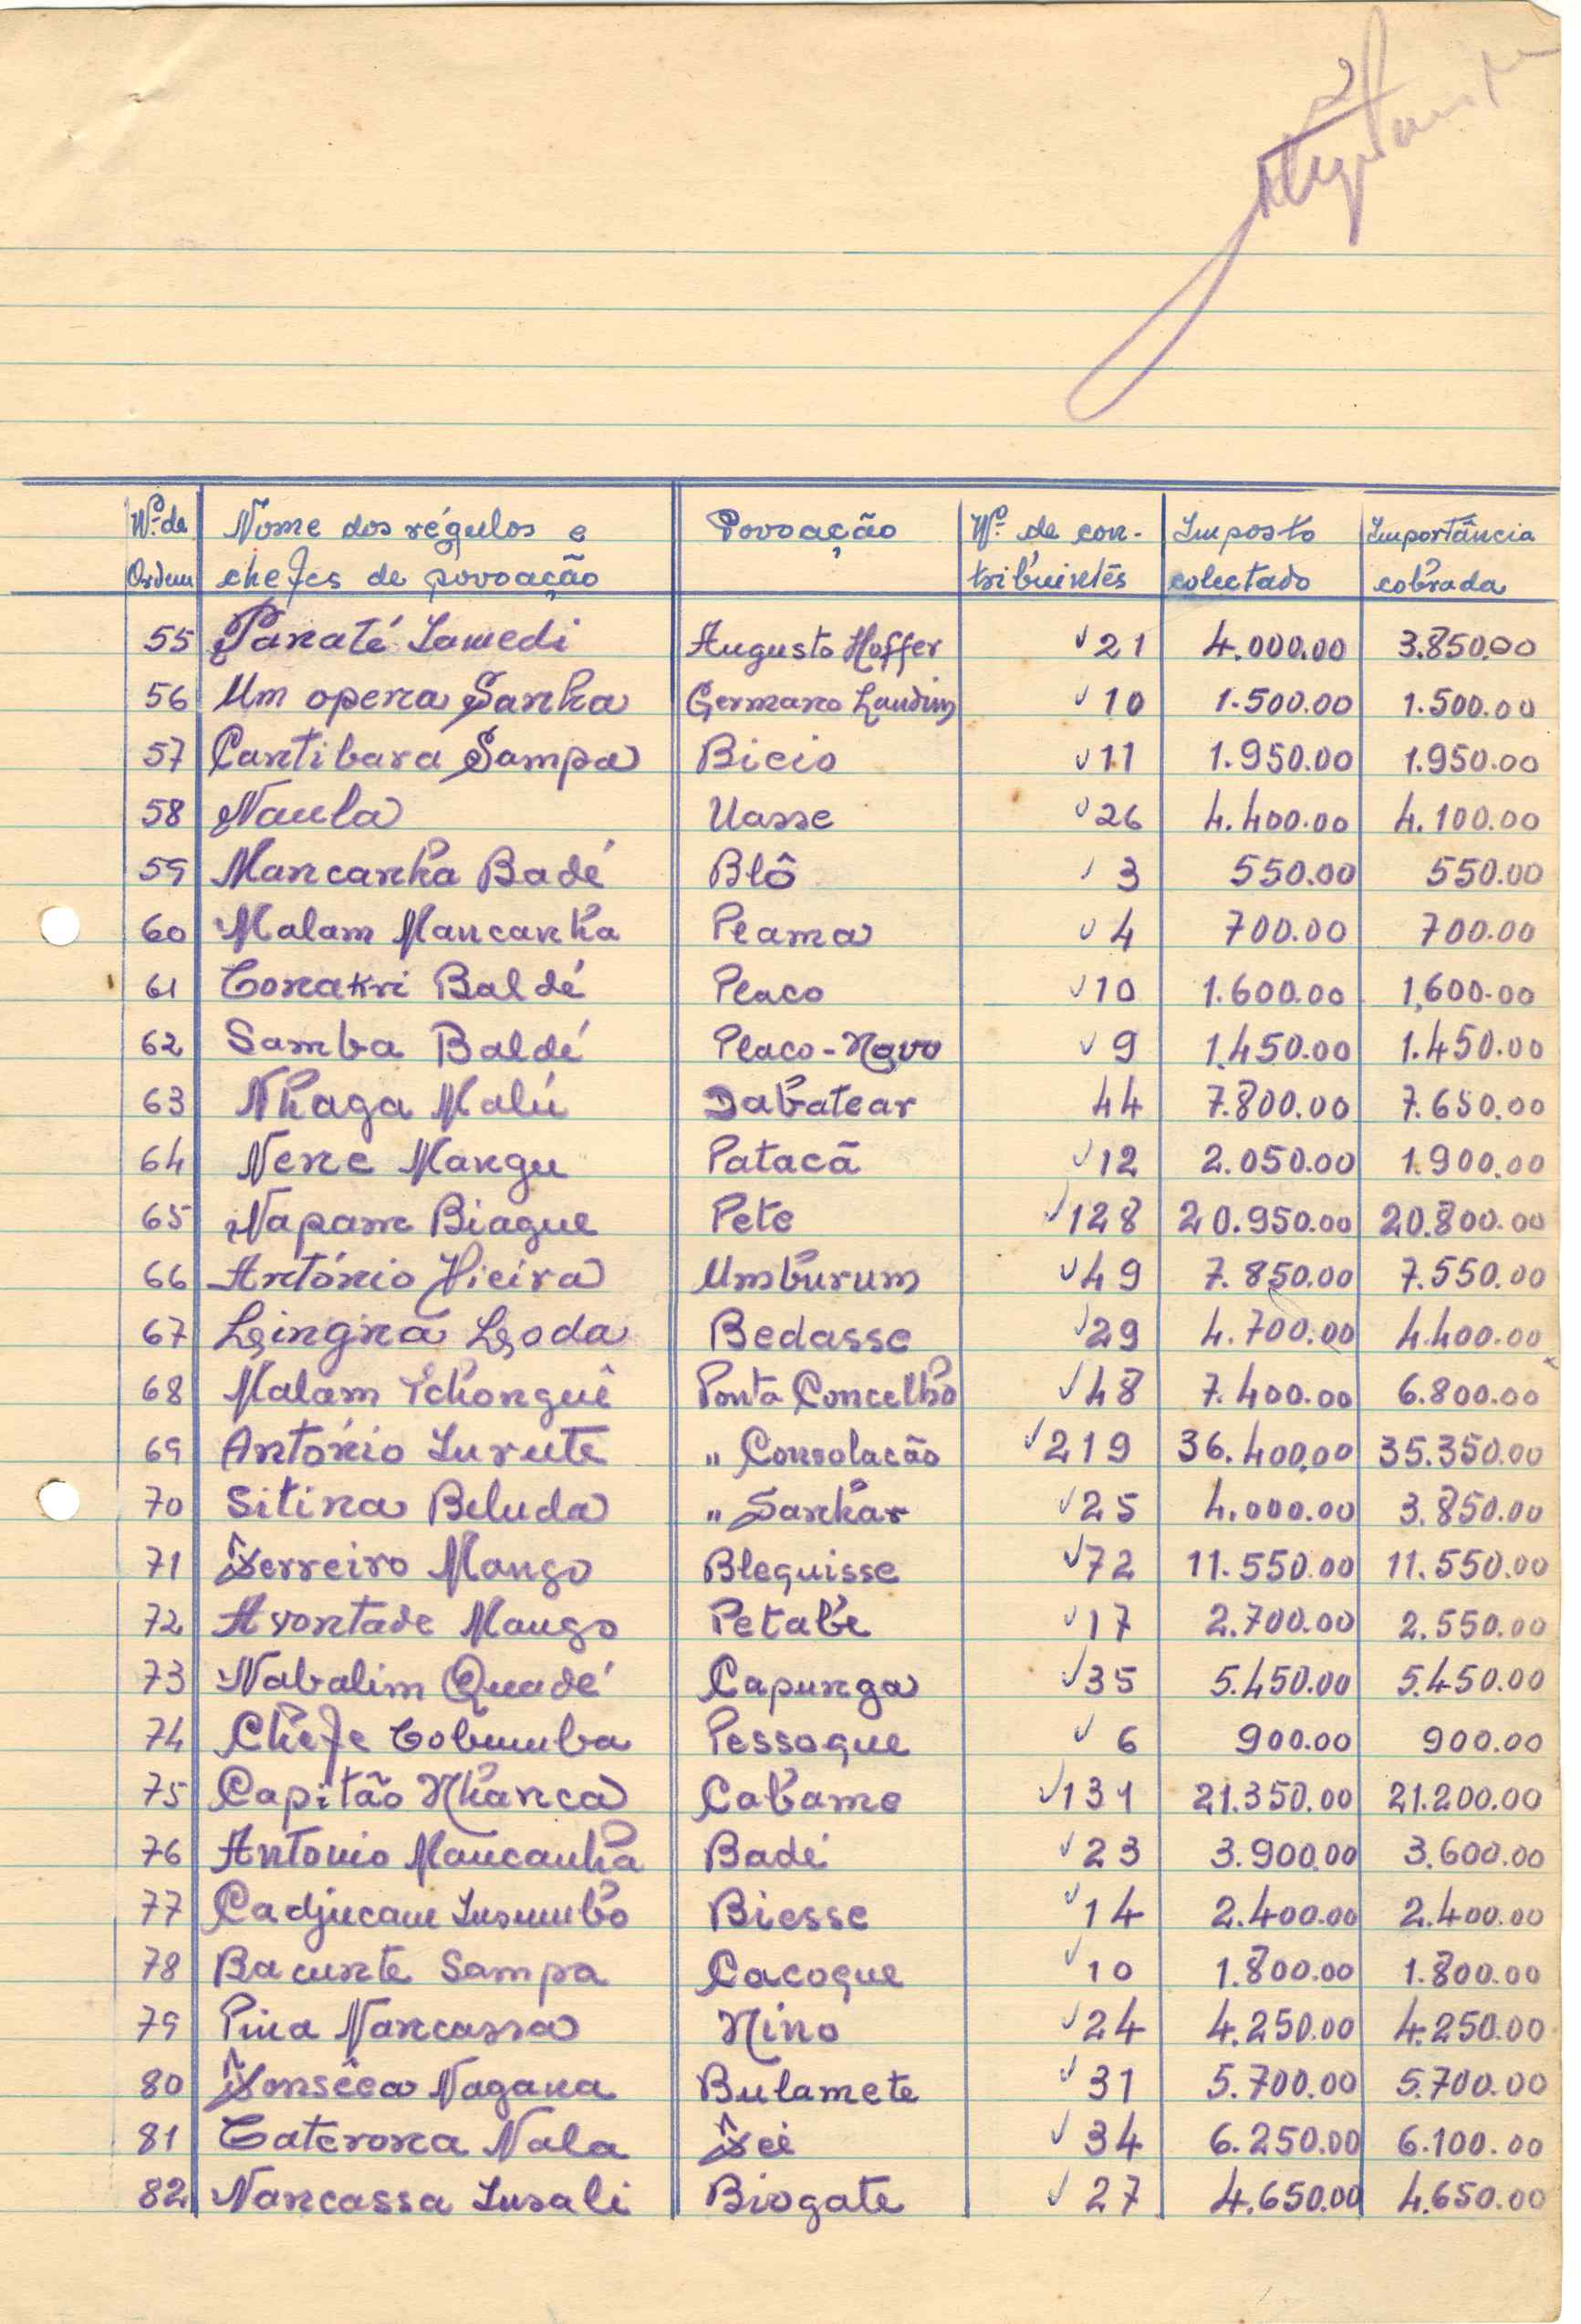 2
Nº de Ordem | Nome dos régulos e chefes de povoação | Povoação | Nº de contribuintes | Imposto colectado | Importância cobrada
55 Panaté Iamedi Augusto Hoffer √ 21 4.000.00 3.850.00
56 Um opena Sanha Germano Landim √ 10 1.500.00 1.500.00
57 Cantibara Sampa Bicio √ 11 1.950.00 1.950.00
58 Naula Uasse √ 26 4.400.00 4.100.00
59 Mancanha Badé Blô √ 3 550.00 550.00
60 Malam Mancanha Peama √ 4 700.00 700.00
61 Conakri Baldé Peaco √ 10 1.600.00 1,600.00
62 Samba Baldé Peaco-Novo √ 9 1.450.00 1.450.00
63 Nhaga Malú Dabatear 44 7.800.00 7.650.00
64 Nene Mangu Patacã √ 12 2.050.00 1.900.00
65 Napam Biague Pete √ 128 20.950.00 20.800.00
66 António Vieira Umburum √ 49 7.850.00 7.550.00
67 Lingna Looda Bedasse √ 29 4.700.00 4.400.00
68 Malam Tchonguê Ponta Concelho √ 48 7.400.00 6.800.00
69 António Iurute " Consolacão √ 219 36.400.00 35.350.00
70 Sitina Beluda " Sanhar √ 25 4.000.00 3.850.00
71 Ferreiro Mango Bleguisse √ 72 11.550.00 11.550.00
72 Avontade Mango Petabe √ 17 2.700.00 2.550.00
73 Nabalim Quadé Capunga √ 35 5.450.00 5.450.00
74 Chefe Cobumba Pessoque √ 6 900.00 900.00
75 Capitão Nhanca Cabame √ 131 21.350.00 21.200.00
76 Antonio Mancanha Badé √ 23 3.900.00 3.600.00
77 Cadjucam Iusumbo Biesse √ 14 2.400.00 2.400.00
78 Bacunte Sampa Cacoque √ 10 1.800.00 1.800.00
79 Pina Nancassa Nino √ 24 4.250.00 4.250.00
80 Fonsêca Nagana Bulamete √ 31 5.700.00 5.700.00
81 Caterona Nala Fei √ 34 6.250.00 6.100.00
82 Nancassa Iusali Biogate √ 27 4.650.00 4.650.00